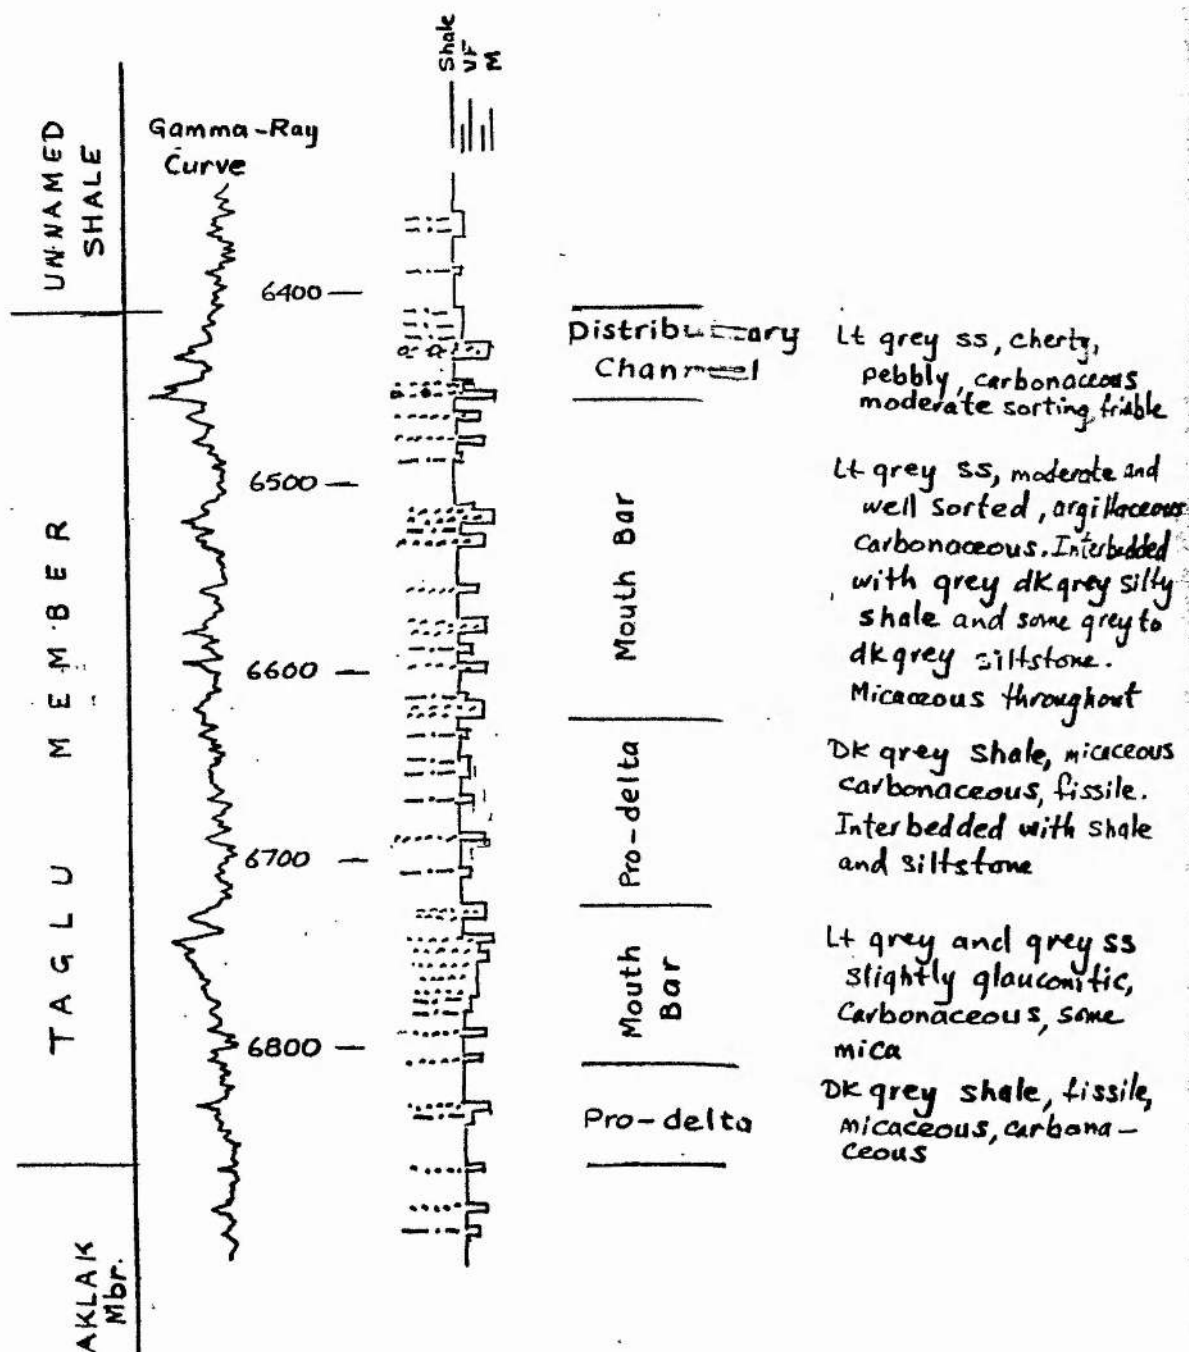 Shale
VF
M
UNNAMED
SHALE
Gamma-Ray
Curve
6400
6500
6600
6700
6800
TAGLU MEMBER
AKLAK
Mbr.
Distributary
Channel
Mouth Bar
Pro-delta
Mouth
Bar
Pro-delta
Lt grey ss, cherty,
pebbly, carbonaceous
moderate sorting, friable
Lt grey ss, moderate and
well sorted, argillaceous
carbonaceous. Interbedded
with grey dk grey silty
shale and some grey to
dk grey siltstone.
Micaceous throughout
DK grey shale, micaceous
carbonaceous, fissile.
Interbedded with shale
and siltstone
Lt grey and grey ss
slightly glauconitic,
Carbonaceous, some
mica
DK grey shale, fissile,
micaceous, carbona-
ceous